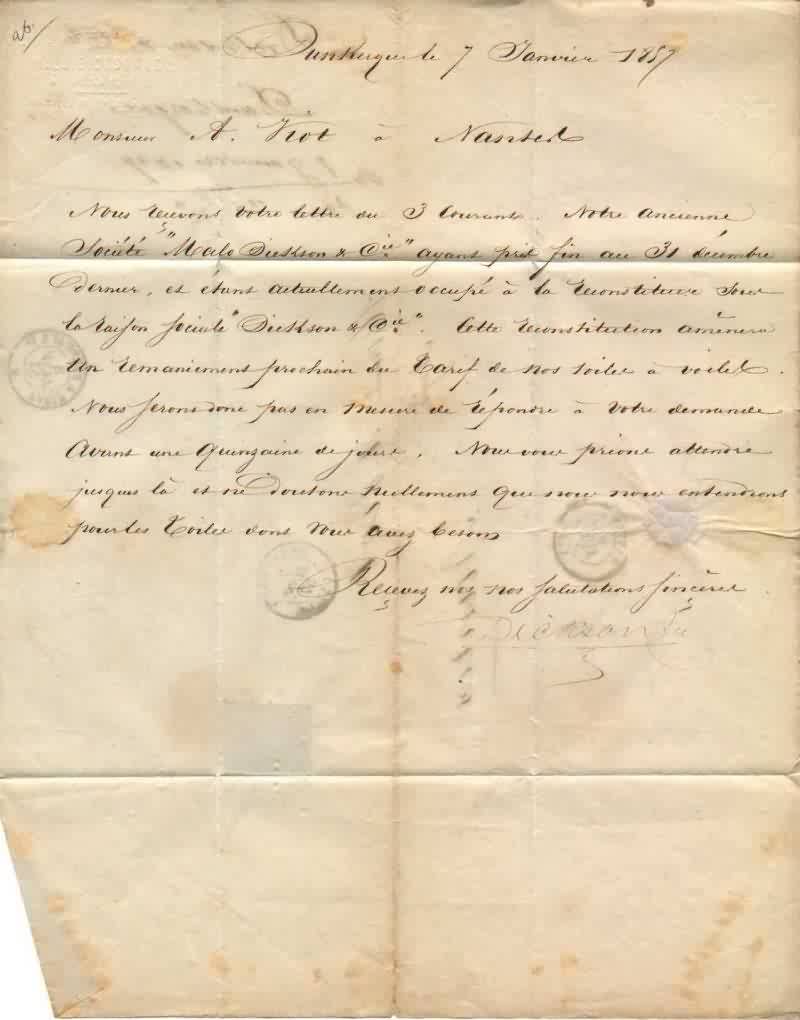 26/
Dunkerque le 7 Janvier 1857
Monsieur A. Viot à Nantes
Nous recevons votre lettre du 3 Courant. Notre ancienne
Société "Malo Dickson & Cie" ayant pris fin au 31 décembre
dernier, et étant actuellement occupé à la reconstituer sous
la raison sociale "Dickson & Cie". Cette reconstitution amènera
un remaniement prochain du tarif de nos toiles à voiles.
Nous serons donc pas en mesure de répondre à votre demande
avant une quinzaine de jours. Nous vous prions attendre
jusques là et ne doutons nullement que nous nous entendrons
pour les toiles dont vous avez besoin
Recevez nos salutations sincères
Dickson Cie